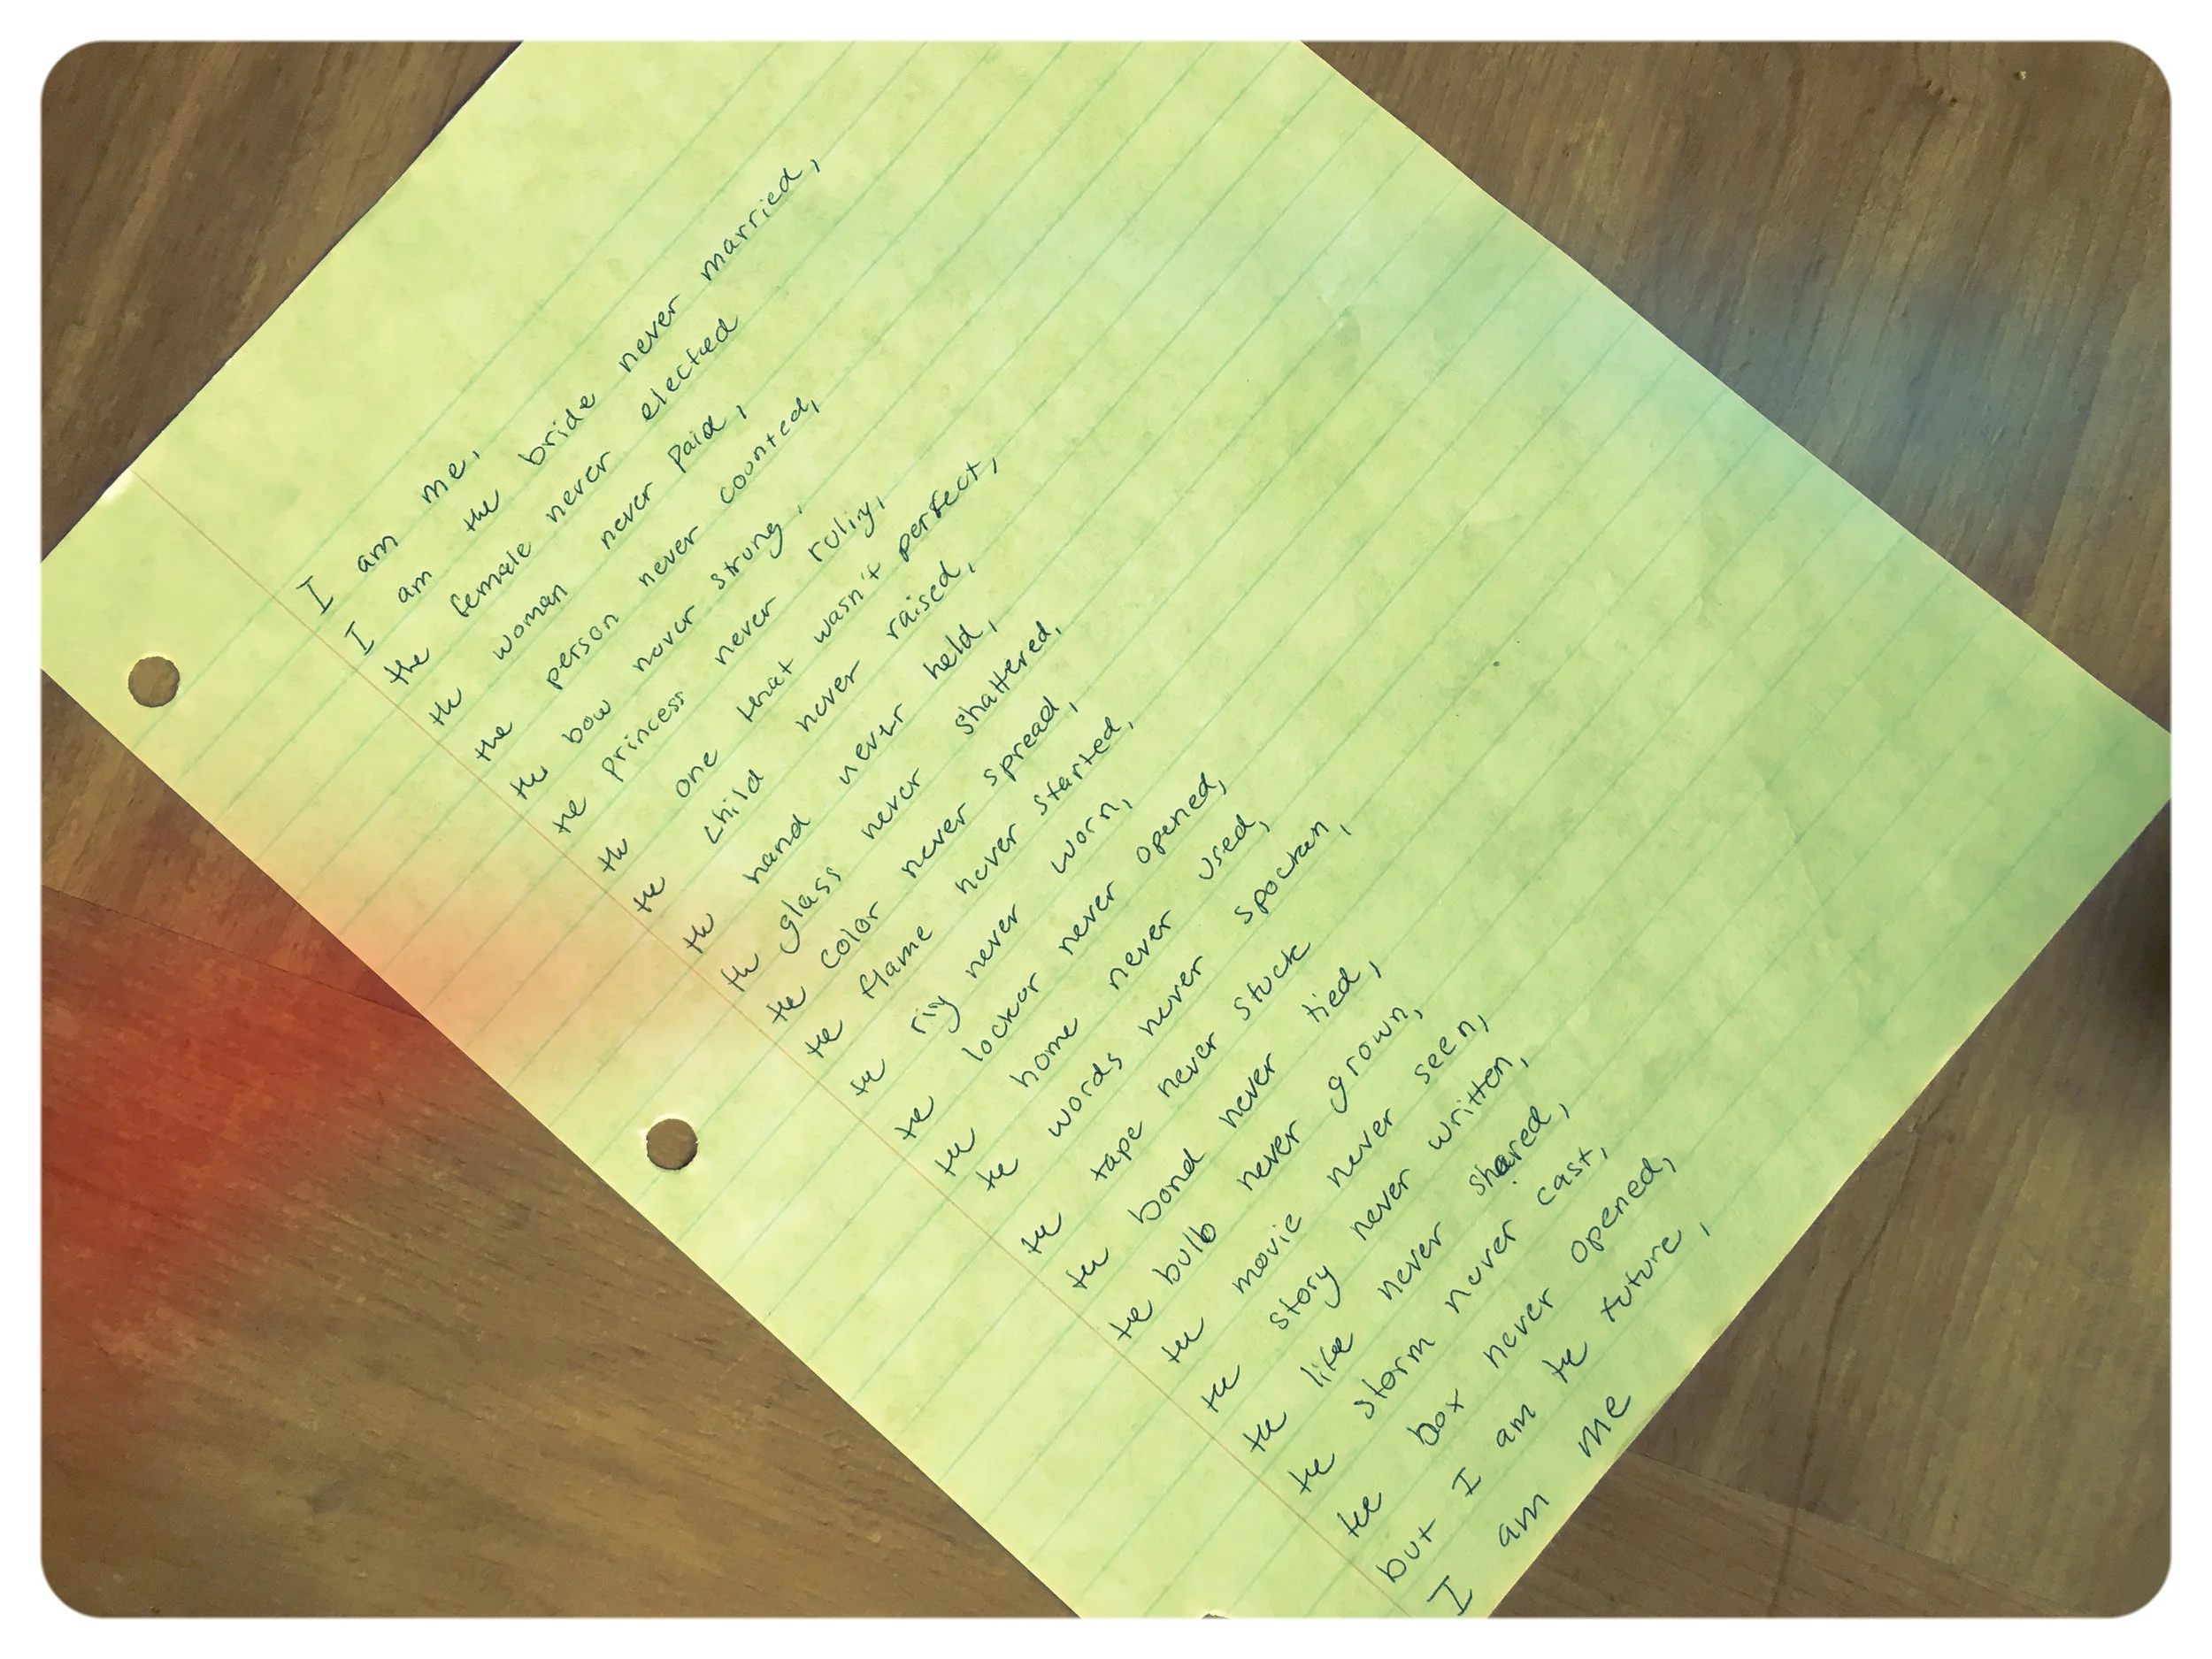 I am me,
I am the bride never married,
the female never elected
the woman never paid,
the person never counted,
the bow never strung,
the princess never ruling,
the one that wasn't perfect,
the child never raised,
the hand never held,
the glass never shattered,
the color never spread,
the flame never started,
the ring never worn,
the locker never opened,
the home never used,
the words never spocken,
the tape never stuck
the bond never tied,
the bulb never grown,
the movie never seen,
the story never written,
the like never shared,
the storm never cast,
the box never opened,
but I am the future,
I am me